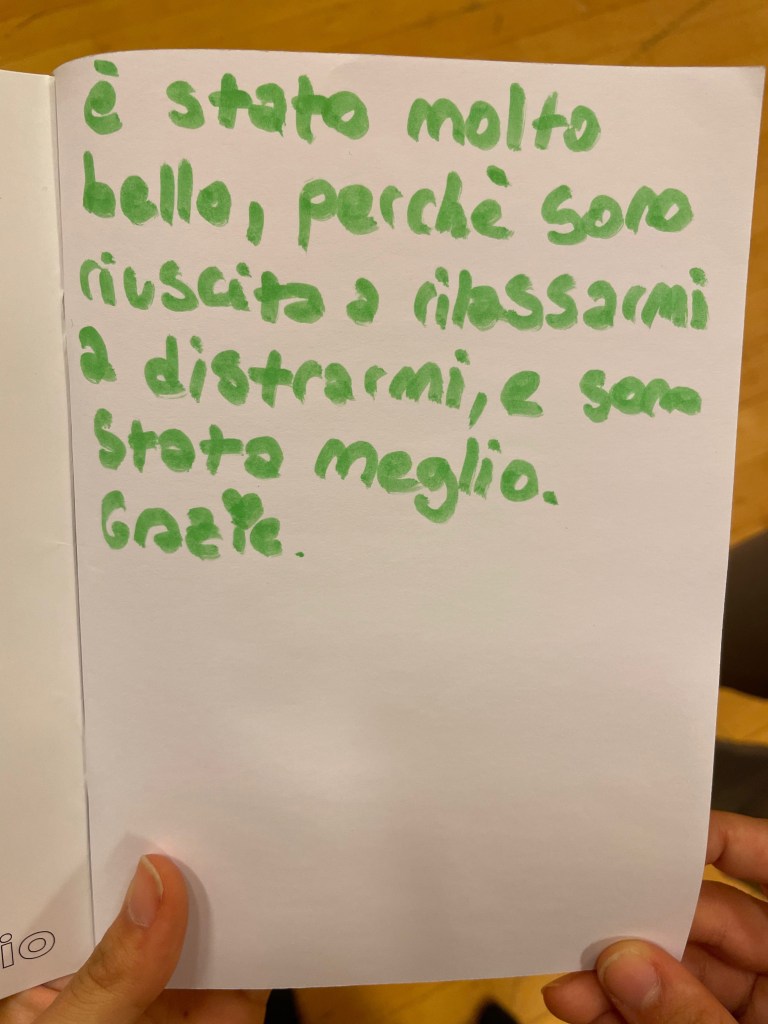 è stato molto
bello, perchè sono
riuscito a rilassarmi
a distrarmi, e sono
stato meglio.
Grazie.
io